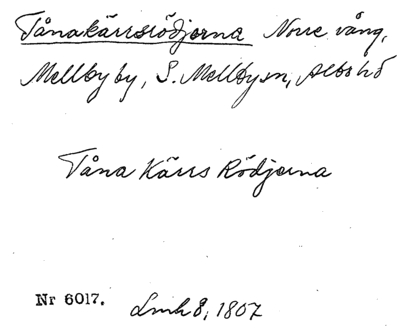 Tånakärrsrödjorna Norre vång,
Mellby by, S. Mellby sn, Albo hd
Tåna Kärrs Rödjorna
Nr 6017. Lmh 8, 1807